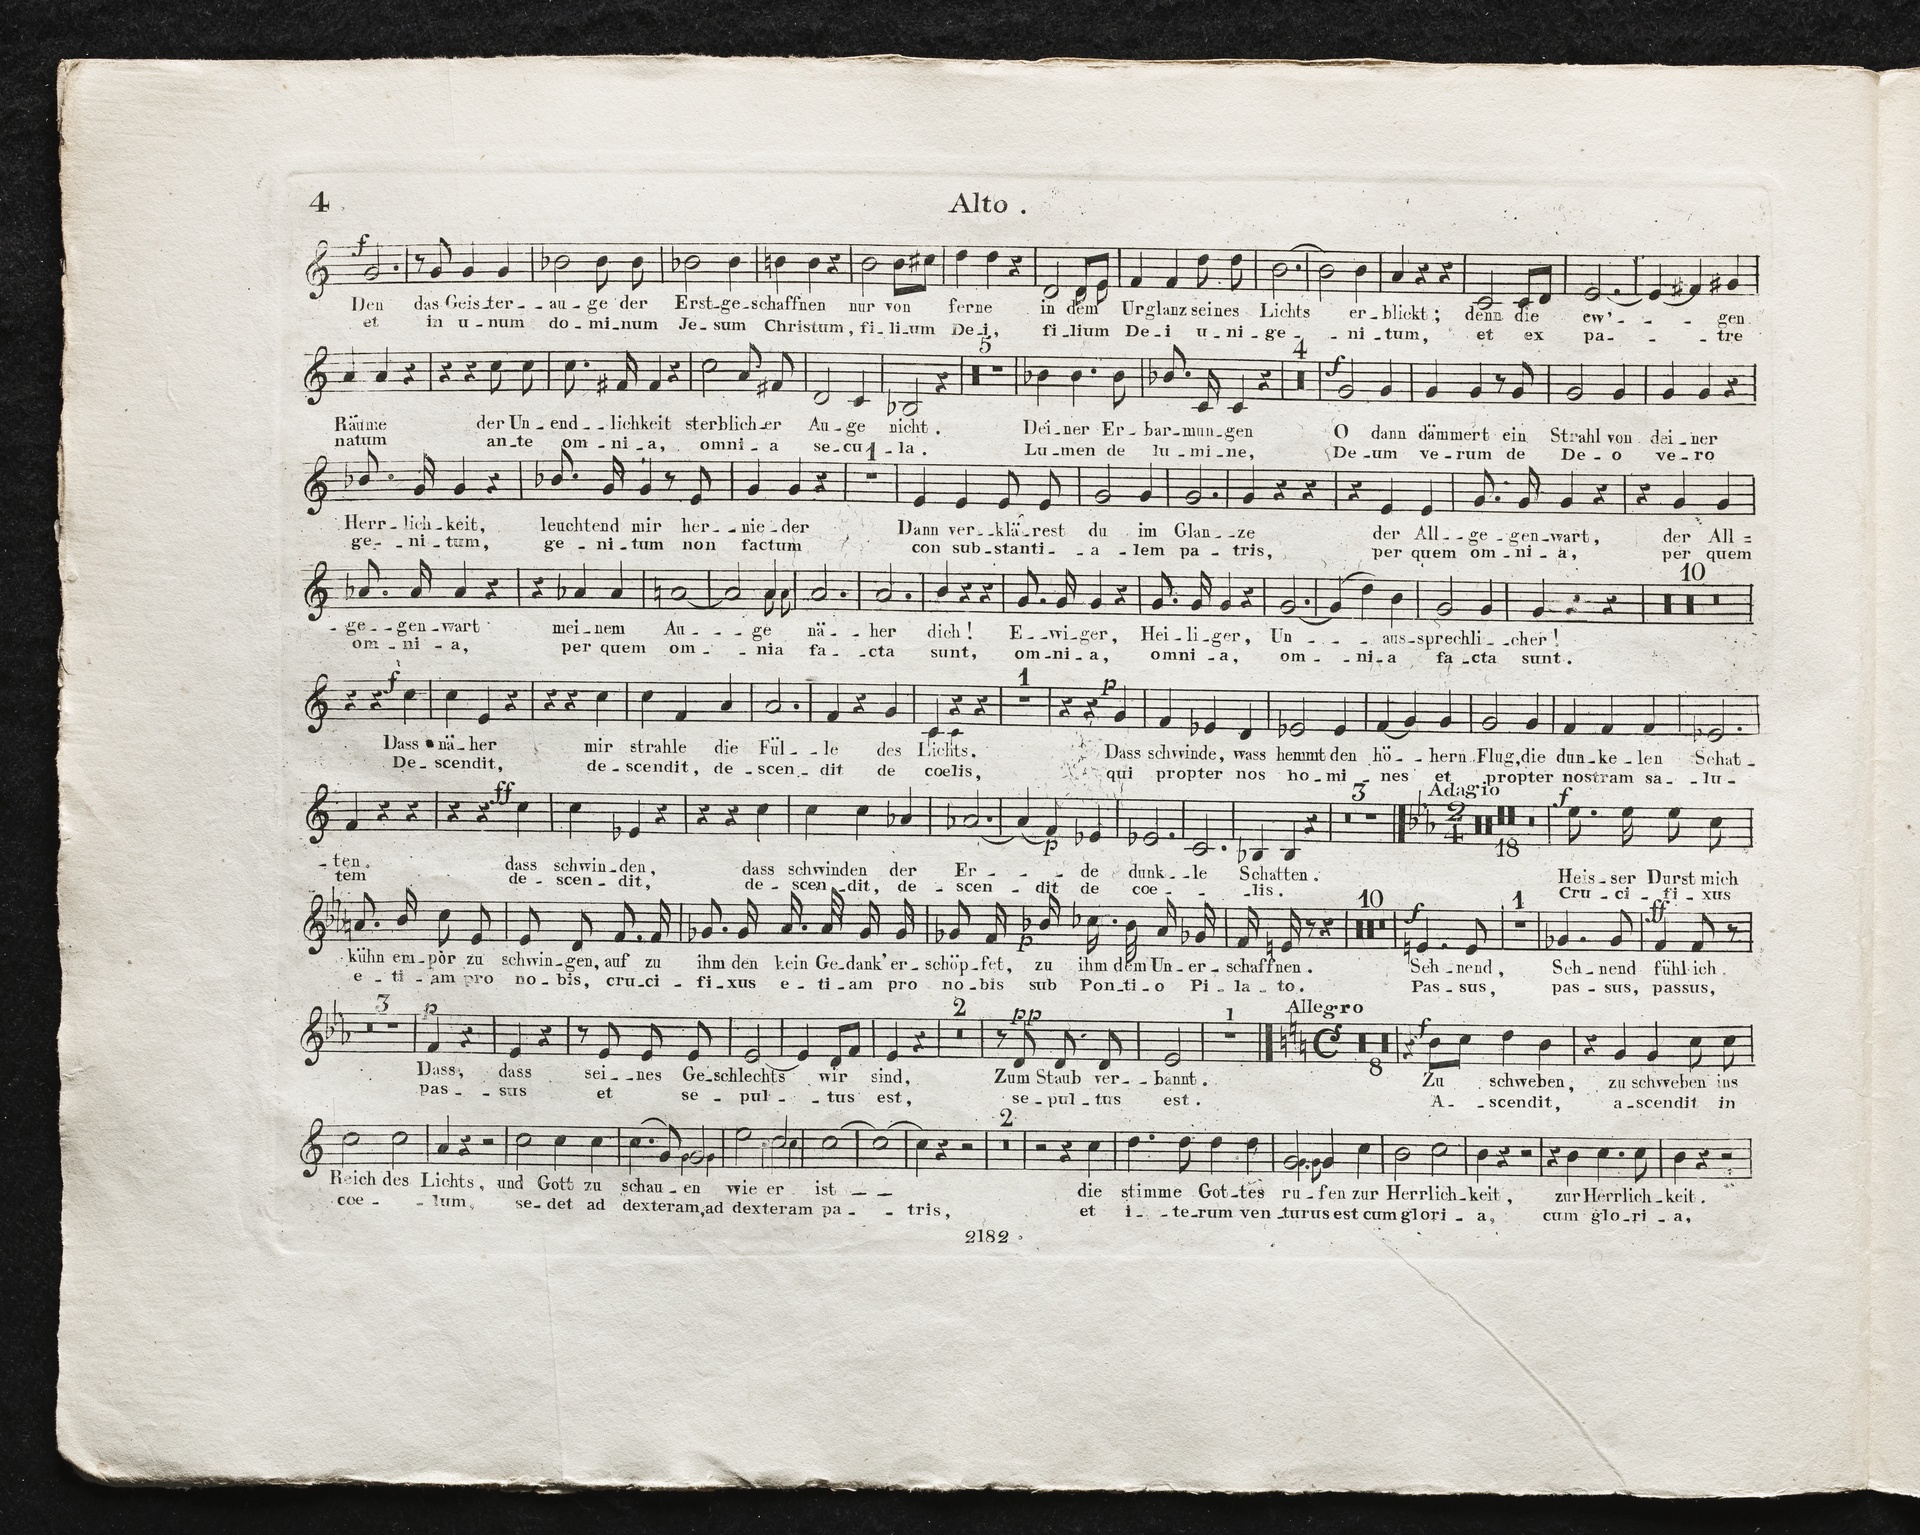 4 Alto.
f
Den das Geis-ter--au-ge der Erst-ge-schaffnen nur von ferne in dem Urglanz seines Lichts er-blickt; denn die ew'---gen
et in u-num do-mi-num Je-sum Christum, fi-li-um De-i, fi-lium De-i u-ni-ge--ni-tum, et ex pa---tre
5 4 f
Räume der Un-end--lichkeit sterblich-er Au-ge nicht. Dei-ner Er-bar-mun-gen O dann dämmert ein Strahl von dei-ner
natum an-te om-ni-a, omni-a se-cu-la. Lu-men de lu-mi-ne, De-um ve-rum de De-o ve-ro
1
Herr-lich-keit, leuchtend mir her--nie-der Dann ver--klä-rest du im Glan--ze der All--ge-gen-wart, der All=
ge--ni-tum, ge-ni-tum non factum con sub-stanti-a-lem pa-tris, per quem om-ni-a, per quem
10
-ge--gen-wart mei-nem Au---ge nä--her dich! E--wi-ger, Hei-li-ger, Un---aus-sprechli-cher!
om-ni-a, per quem om--nia fa--cta sunt, om-ni-a, omni-a, om--ni-a fa-cta sunt.
f 1 p
Dass nä-her mir strahle die Fül--le des Lichts. Dass schwinde, wass hemmt den hö--hern Flug, die dun-ke-len Schat-
De-scendit, de-scendit, de-scen-dit de coelis, qui propter nos ho-mi-nes et propter nostram sa--lu-
ff p 3 Adagio 2/4 18 f
-ten. dass schwin-den, dass schwinden der Er---de dunk--le Schatten. Heis-ser Durst mich
tem de-scen-dit, de-scen-dit, de-scen-dit de coe---lis. Cru-ci-fi-xus
p 10 f 1 ff
kühn em-pör zu schwin-gen, auf zu ihm den kein Ge-dank' er-schöp-fet, zu ihm dem Un-er-schaffnen. Seh-nend, Seh-nend fühl ich
e-ti-am pro no-bis, cru-ci-fi-xus e-ti-am pro no-bis sub Pon-ti-o Pi-la-to. Pas-sus, pas-sus, passus,
3 p 2 pp 1 Allegro 8 f
Dass, dass sei--nes Ge-schlechts wir sind, Zum Staub ver--bannt. Zu schweben, zu schweben ins
pas--sus et se-pul--tus est, se-pul-tus est. A--scendit, a-scendit in
2
Reich des Lichts, und Gott zu schau-en wie er ist -- die stimme Got-tes ru-fen zur Herrlich-keit, zur Herrlich-keit.
coe--lum, se-det ad dexteram, ad dexteram pa--tris, et i--te-rum ven-turus est cum glori-a, cum glo-ri-a,
2182.